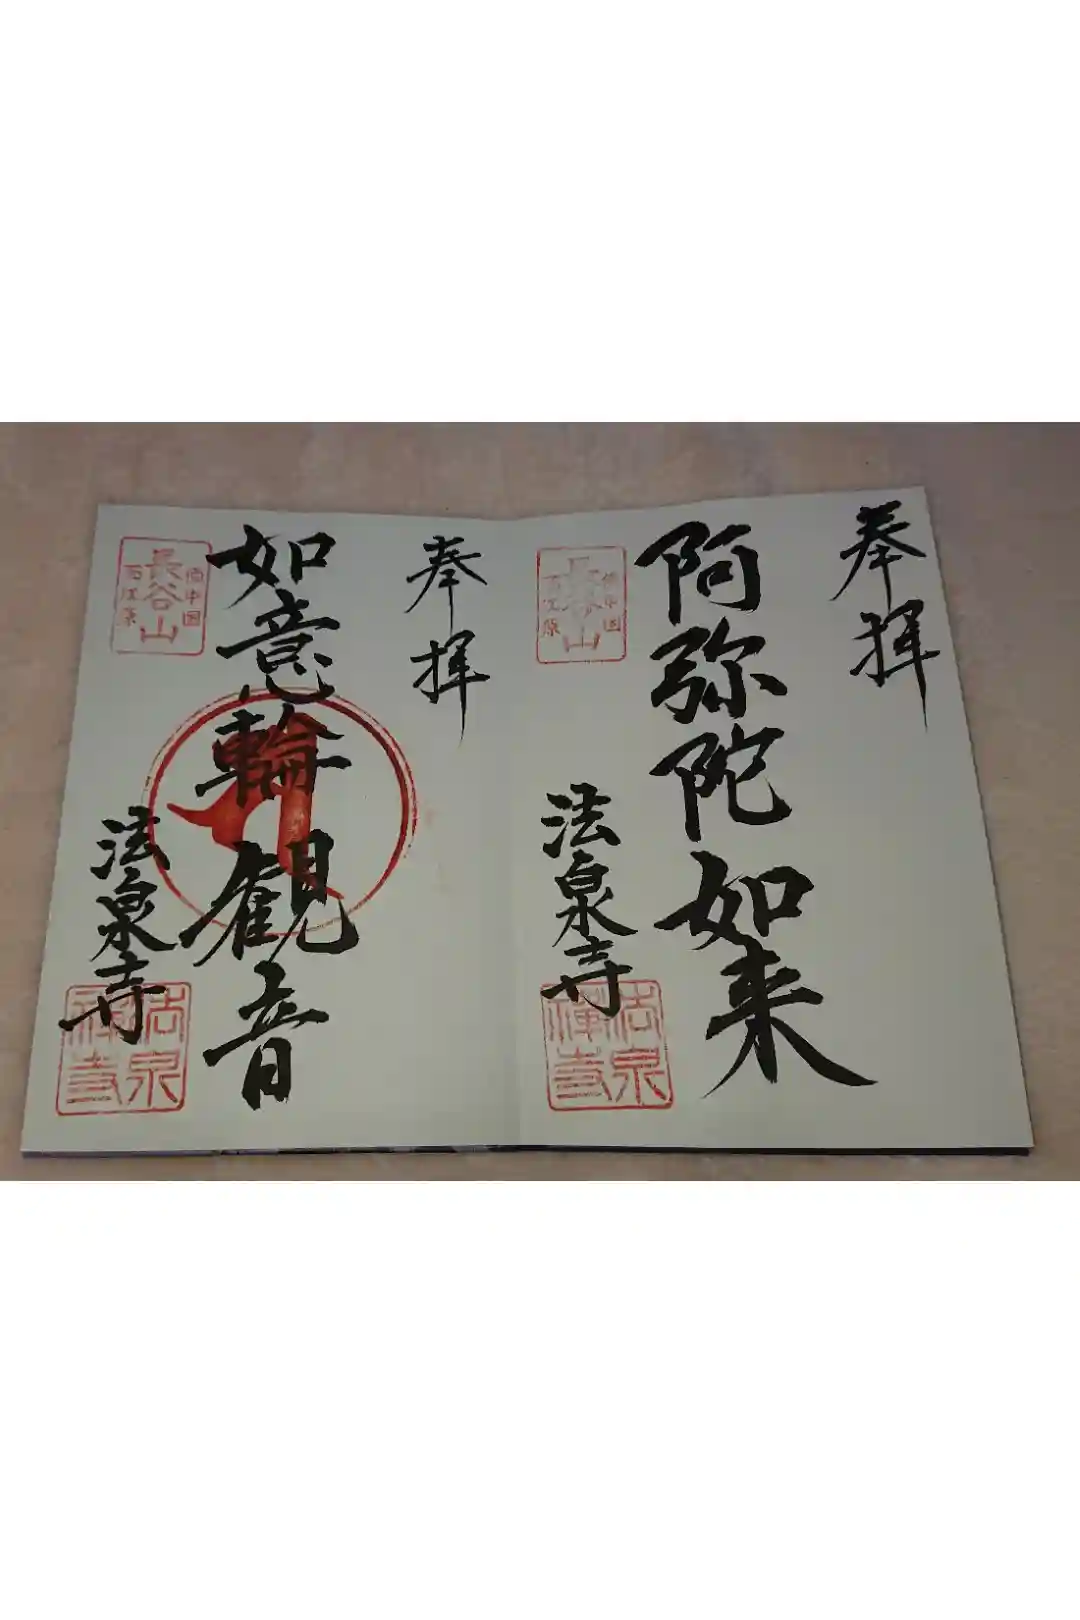 奉拝
阿弥陀如来
備中国
長谷山
西江原
法泉寺
法泉
禅寺
奉拝
如意輪観音
備中国
長谷山
西江原
法泉寺
法泉
禅寺